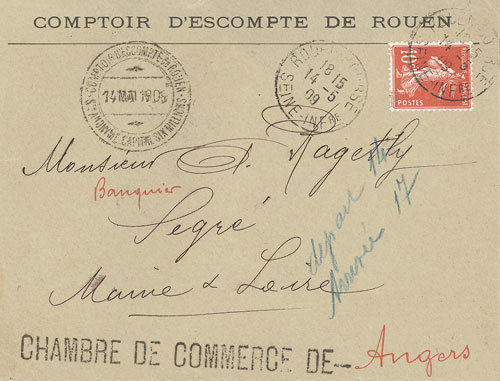 COMPTOIR D'ESCOMPTE DE ROUEN
COMPTOIR D'ESCOMPTE DE ROUEN
14 MAI 1909
Sté ANONYME CAPITAL SIX MILLIONS
ROUEN BOURSE
18 15
14 -5
09
SEINE-INFRE
10
POSTES
Monsieur A.
Banquier
Segré
Maine & Loire
départ 14
Arrivée 17
CHAMBRE DE COMMERCE DE- Angers